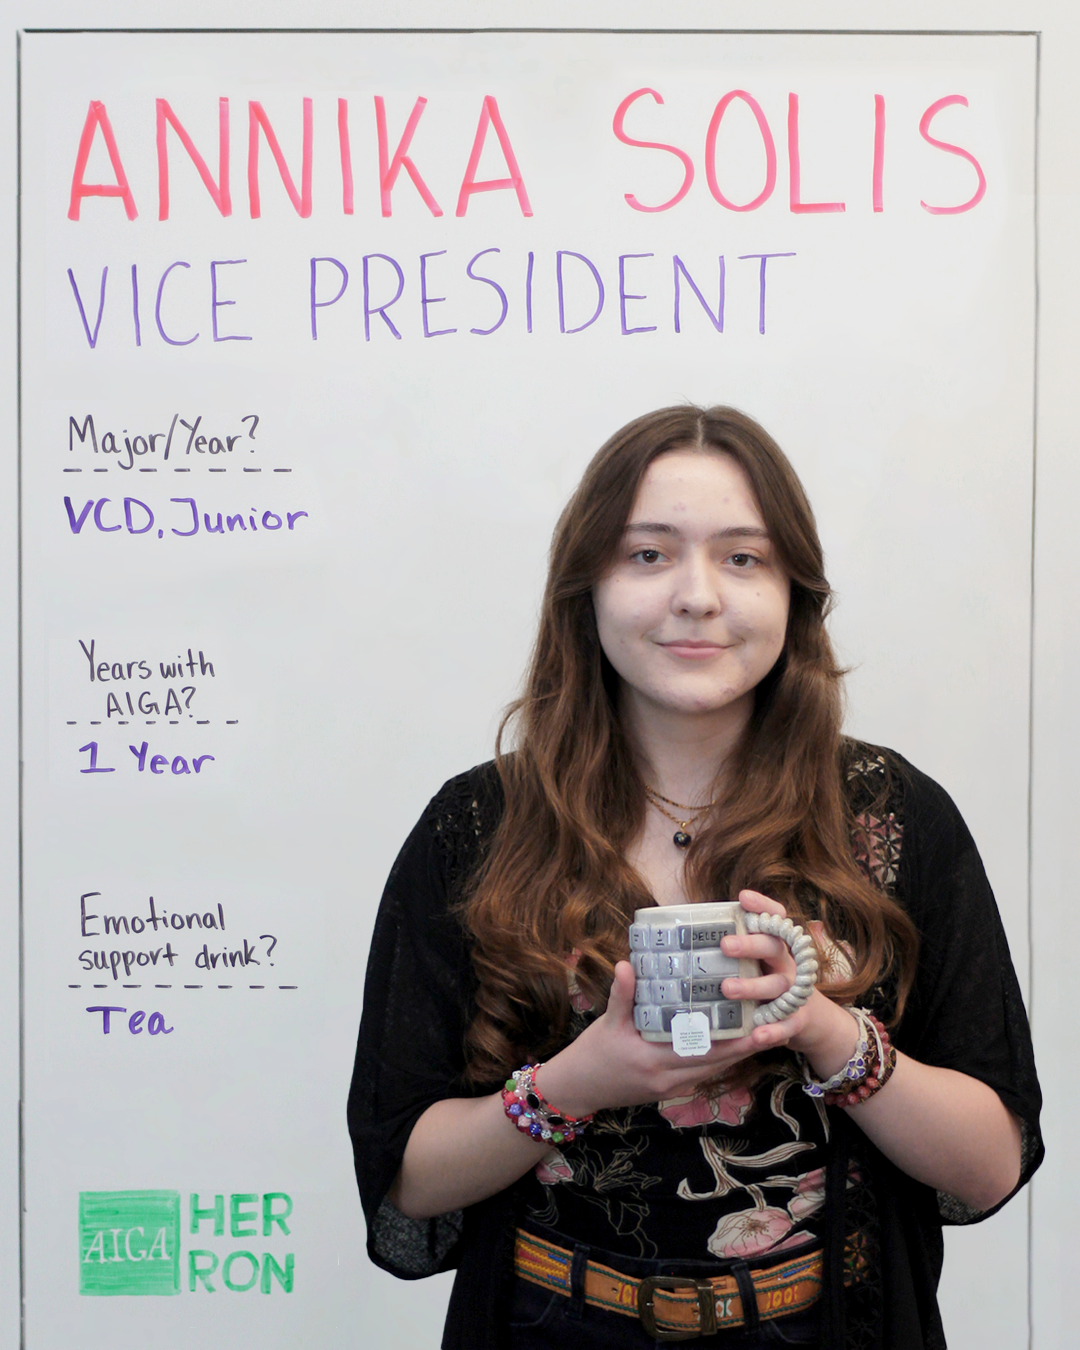 ANNIKA SOLIS
VICE PRESIDENT
Major/Year?
VCD, Junior
Years with
AIGA?
1 Year
Emotional
support drink?
Tea
DELETE
ENTE
AIGA
HER
RON